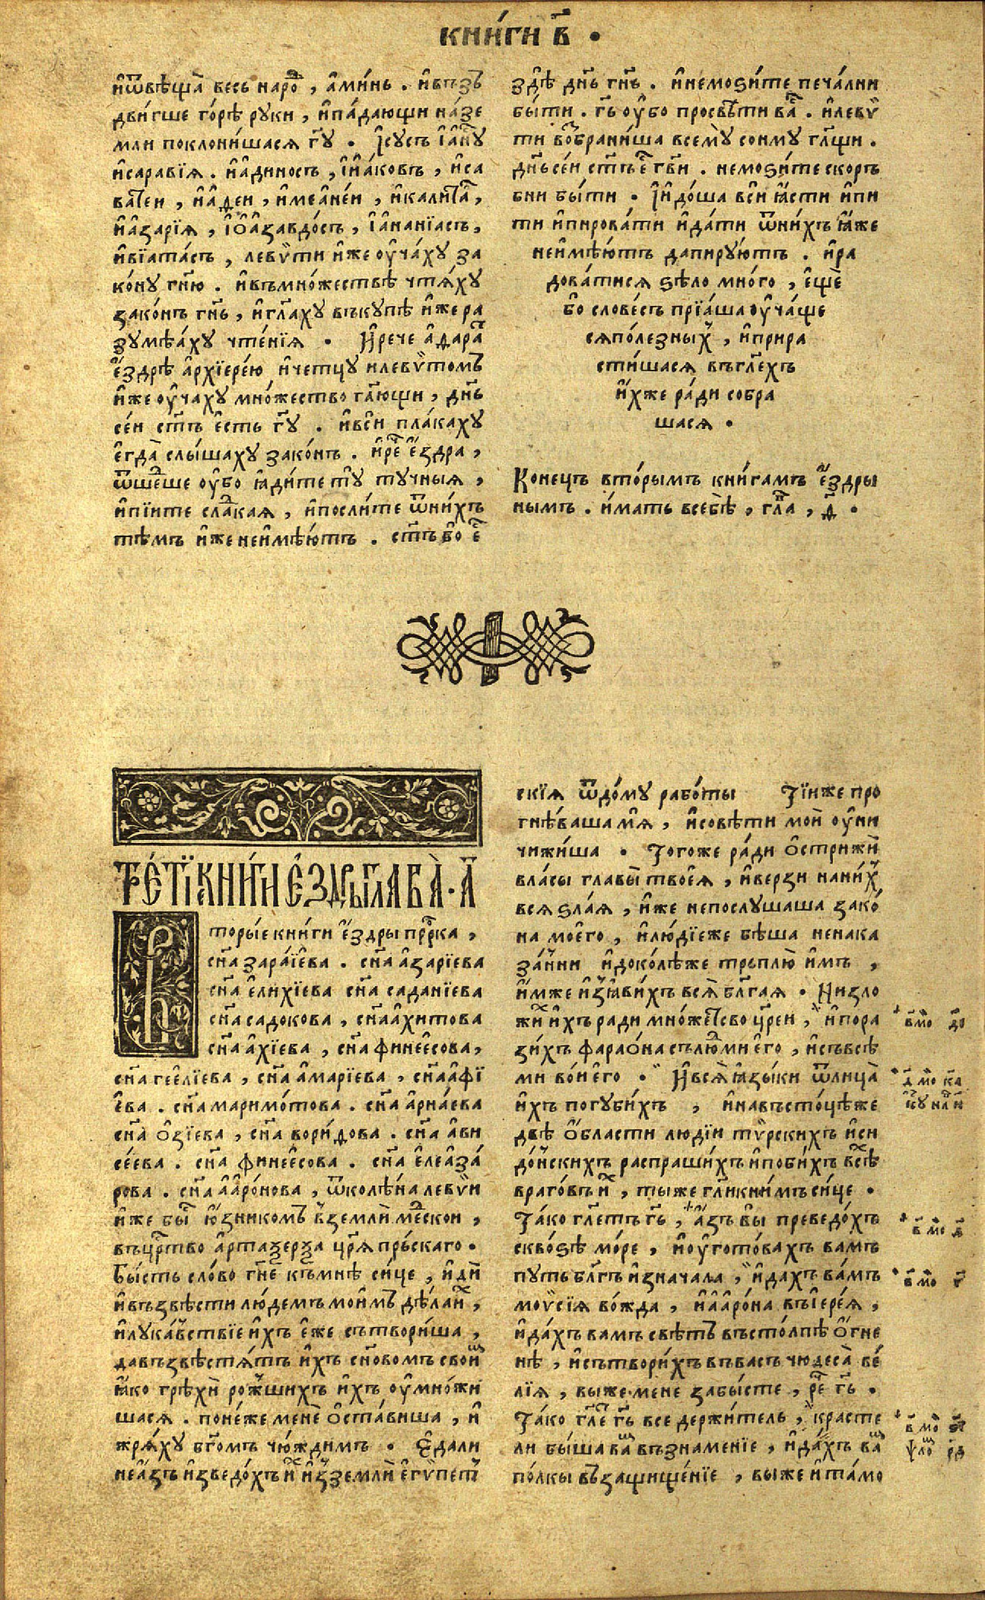 КНИ́ГИ В҃ •
и҆ѿвѣща̀ весь наро́д , а҆ми́нь . и҆въз̾
дви́гше го́рѣ руки , и҆па́дающи на́зе
мли поклони́шася г҃у . І҆сусъ і҆а҆нꙋ
и҆саравїя . и҆а҆диносъ , і҆и҆а́ковъ , и҆са
и҆а҆зарїя , і҆ѻ҆а҆завдо́съ , і҆а҆нанїасъ ,
и҆вїата́съ , левѵ́ти и҆же оу҆ча́ху за
ко́ну гн҃ю . и҆въмно́жествѣ чтя́ху
зако́нъ гн҃ь , и҆гл҃аху въкупѣ и҆же ра
зумѣа́ху чте́нїя • И҆рече а҆дара
е҆́здрѣ а҆рхїере́ю и҆четцу илевѵ́томъ
и҆же оу҆ча́ху мно́жество гл҃ющи , дн҃ь
се́и ст҃ъ е҆сть г҃у . и҆вси́ пла́каху
е҆гда̀ слы́шаху зако́нъ . и҆ре́ е҆́здра ,
ѿше́дше оу҆́бо ꙗ҆ди́те ту ту́чныя ,
и҆пі́ите сла́дкая , и҆посли́те ѿни́хъ
тѣмъ и҆же неи҆мѣ́ютъ . ст҃ъ бо е҆
здѣ̀ дн҃ь гн҃ь . и҆немоѕи́те печа́лни
бы́ти . г҃ь оу҆́бо просвѣ́ти ва́ . илевѵ
ти во҆брани́ша всему соиму гл҃щи .
дн҃ьсе́и ст҃ъе г҃ви . немоѕи́те скоръ
бни бы́ти • І҆и҆до́ша вси ꙗ҆́сти и҆пи
ти и҆пирова́ти и҆да́ти ѿни́хъ ꙗ҆́же
неи҆мѣ́ютъ дапирꙋ́ютъ . и҆ра
дова́тися ѕѣло мно́го , е҆щѐ
бо словесъ прїа́ша оу҆ча́ще
сяполезных , и҆прира
сти́шася въгл҃ехъ
и҆́хже ра́ди собра
шася •
Коне́цъ втори́мъ кни́гамъ е҆́здры
нымъ . и҆́мать всебѣ̀ , гл҃а , д҃ •
ТРЕ́ТЇИ КНИ́ГИ Е҆́ЗДРЫ ГЛАВА̀ . А҃
Вторы́е кни́ги е҆́здры прⷪ҇рка ,
сн҃а зара́їева . сн҃а а҆за́рїева
сн҃а е҆ли́хїева сн҃а садані́ева
сн҃а садо́кова , сн҃а а҆хи́това
сн҃а а҆хі́ева , сн҃а финее́сова ,
сн҃а гее҆лі́ева , сн҃а а҆марі́ева , сн҃а а҆фї
е҆ва . сн҃а маримо́това . сн҃а а҆рна́ева
сн҃а ѻ҆зі́ева , сн҃а вори́дова . сн҃а а҆ви
се́ева . сн҃а финее́сова . сн҃а е҆леаза́
рова . сн҃а а҆аро́нова , ѿколѣ́на леви́и
и҆же бы́ ю҆́зникомъ в̾землѝ ме́дскои ,
въцр҃тво а҆ртаѯерѯа цр҃я пръ́скаго .
Бы́сть сло́во гн҃е къмнѣ̀ си́це , и҆ди́
и҆възвѣсти лю́демъ мои́мъ дѣ́ла и҆́х ,
и҆лука́вствїе и҆́хъ е҆́же сътвори́ша ,
давъзвѣстя́тъ и҆́хъ сн҃овомъ свои́м
ꙗ҆́ко грѣхѝ ро́ждших и҆́хъ оу҆мно́жи
шася . поне́же менѐ ѻ҆ста́виша , и҆
жря́ху бг҃омъ чю́ждимъ . Е҆дали
неа҆́зъ и҆зведо́хъ и҆́х и҆з̾землѝ е҆ги́пет
скїя ѿдо́му рабо́ты Ті́иже про
гнѣ́ваша мя̀ , и҆совѣ́ти моѝ оу҆ни
чижи́ша • Того́же ра́ди ѻ҆стрижѝ
вла́сы главы̀ твоея̀ , и҆ве́рзи нани́х
вся ѕла́я , и҆же непослу́шаша зако́
на мое́го , и҆лю́дїеже бѣ́ша ненака
за́нни и҆доко́лѣже трьплю̀ и҆мъ ,
и҆́мже и҆з̾ꙗ҆ви́хъ вся̀ бл҃га́я • Низло
жи́ и҆́хъ ради мно́жество цр҃еи , и҆пора
зи́хъ фарао́на сълю́дми е҆го̀ , и҆съвсѣ̀
ми во́и е҆го̀ . И҆вся̀ ꙗ҆зы́ки ѿлица̀
и҆́хъ погуби́хъ , и҆навъсто́цѣже
двѣ̀ ѻ҆́бласти лю́дїи ти́рскихъ и҆си
до́нскихъ распраши́хъ и҆поби́хъ всѣ̀
враго́въ и҆́х , ты́же гл҃и книмъ си́це .
Та́ко гл҃етъ г҃ь , а҆́зъ вы̀ преведо́хъ
сквоѕѣ̀ мо́ре , и҆оу҆гото́вахъ вамъ
путь бл҃гъ и҆знача́ла , и҆дахъ ва́мъ
моѵ҆сі́я во́жда , и҆а҆аро́на въі҆ере́я ,
и҆да́хъ вамъ свѣтъ въсто́лпѣ ѻ҆́гне
нѣ , и҆сътвори́хъ въвасъ чюдеса̀ ве́
лїя , вы́же мене забы́сте , ре́ г҃ь .
Та́ко гл҃е г҃ь все держи́тель , красте
ли бы́ша ва́м възнаменїе , и҆да́хъ ва́м
по́лки въ̾защище́нїе , вы́же и҆та́мо